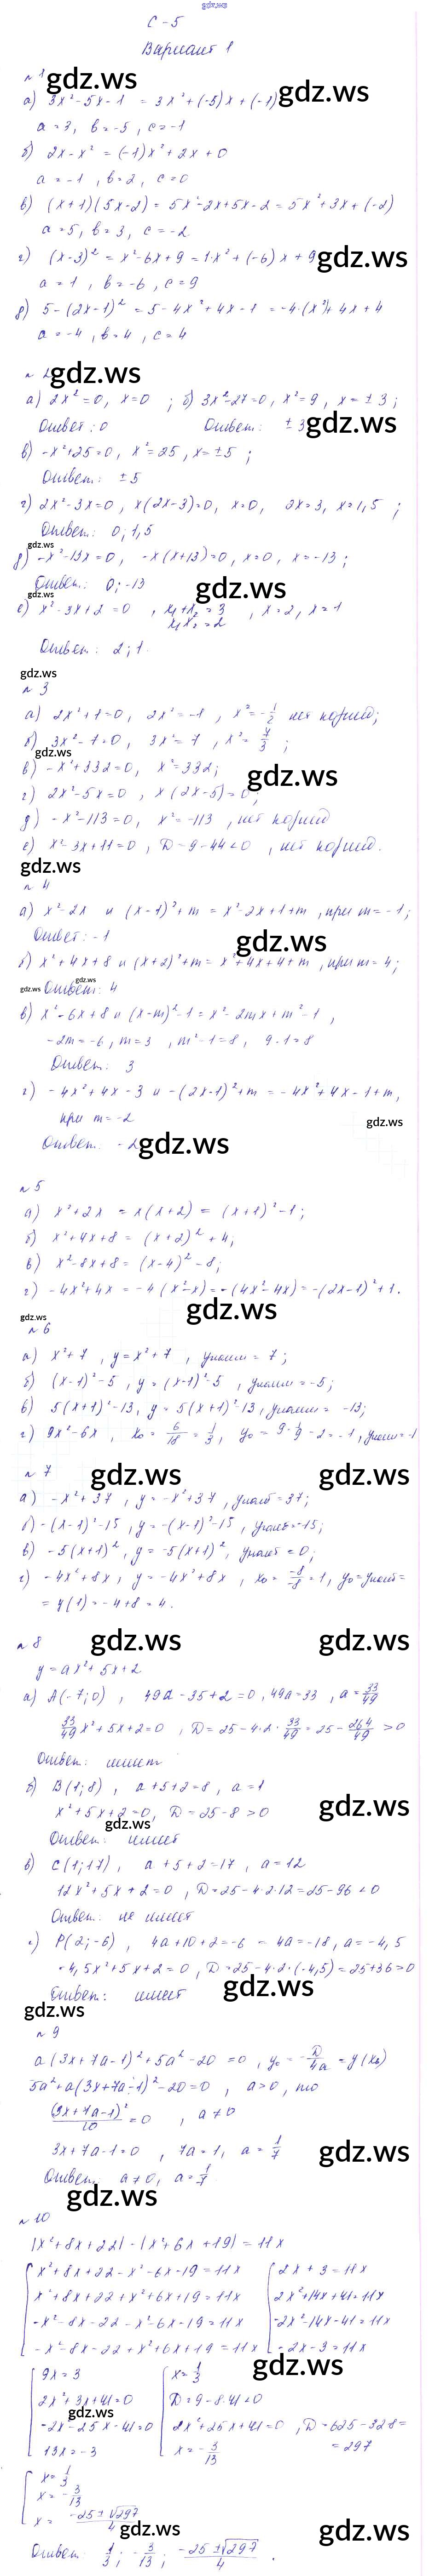 gdz.ws
С-5
Вариант 1
№1
gdz.ws
gdz.ws
а) 3x²-5x-1 = 3x²+(-5)x+(-1)
a=3, b=-5, c=-1
б) 2x-x² = (-1)x²+2x+0
a=-1, b=2, c=0
в) (x+1)(5x-2) = 5x²-2x+5x-2 = 5x²+3x+(-2)
a=5, b=3, c=-2
г) (x-3)² = x²-6x+9 = 1·x²+(-6)x+9
gdz.ws
a=1, b=-6, c=9
д) 5-(2x-1)² = 5-4x²+4x-1 = -4·(x²)+4x+4
a=-4, b=4, c=4
№2
gdz.ws
а) 2x²=0, x=0; б) 3x²-27=0, x²=9, x=±3;
Ответ: 0 Ответ: ±3
gdz.ws
в) -x²+25=0, x²=25, x=±5;
Ответ: ±5
г) 2x²-3x=0, x(2x-3)=0, x=0, 2x=3, x=1,5;
Ответ: 0; 1,5
gdz.ws
д) -x²-13x=0, -x(x+13)=0, x=0, x=-13;
Ответ: 0; -13
gdz.ws
gdz.ws
е) x²-3x+2=0, x₁+x₂=3, x=2, x=1
x₁x₂=2
Ответ: 2; 1.
gdz.ws
№3
а) 2x²+1=0, 2x²=-1, x²=-1/2 нет корней;
б) 3x²-7=0, 3x²=7, x²=7/3;
gdz.ws
в) -x²+332=0, x²=332;
gdz.ws
г) 2x²-5x=0, x(2x-5)=0;
д) -x²-113=0, x²=-113, нет корней
е) x²-3x+11=0, D=9-44<0, нет корней.
gdz.ws
№4
а) x²-2x и (x-1)²+m = x²-2x+1+m, при m=-1;
Ответ: -1
gdz.ws
б) x²+4x+8 и (x+2)²+m = x²+4x+4+m, при m=4;
gdz.ws
gdz.ws
Ответ: 4
в) x²-6x+8 и (x-m)²-1 = x²-2mx+m²-1,
-2m=-6, m=3, m²-1=8, 9-1=8
Ответ: 3
г) -4x²+4x-3 и -(2x-1)²+m = -4x²+4x-1+m,
при m=-2
gdz.ws
Ответ: -2
gdz.ws
№5
а) x²+2x = x(x+2) = (x+1)²-1;
б) x²+4x+8 = (x+2)²+4;
в) x²-8x+8 = (x-4)²-8;
г) -4x²+4x = -4(x²-x) = -(4x²-4x) = -(2x-1)²+1.
gdz.ws
gdz.ws
№6
а) x²+7, y=x²+7, yнаим=7;
б) (x-1)²-5, y=(x-1)²-5, yнаим=-5;
в) 5(x+1)²-13, y=5(x+1)²-13, yнаим=-13;
г) 9x²-6x, x₀=6/18=1/3, y₀=9·1/9-2=-1, yнаим=-1
№7
gdz.ws
gdz.ws
а) -x²+37, y=-x²+37, yнаиб=37;
б) -(x-1)²-15, y=-(x-1)²-15, yнаиб=-15;
в) -5(x+1)², y=-5(x+1)², yнаиб=0;
г) -4x²+8x, y=-4x²+8x, x₀=-8/-8=1, y₀=yнаиб=
=y(1)=-4+8=4.
№8
gdz.ws
gdz.ws
y=ax²+5x+2
а) A(-7;0), 49a-35+2=0, 49a=33, a=33/49
33/49x²+5x+2=0, D=25-4·2·33/49=25-264/49>0
Ответ: имеет
б) B(1;8), a+5+2=8, a=1
gdz.ws
x²+5x+2=0, D=25-8>0
gdz.ws
Ответ: имеет
в) C(1;17), a+5+2=17, a=12
12x²+5x+2=0, D=25-4·2·12=25-96<0
Ответ: не имеет
г) P(2;-6), 4a+10+2=-6 4a=-18, a=-4,5
-4,5x²+5x+2=0, D=25-4·2·(-4,5)=25+36>0
gdz.ws
Ответ: имеет
gdz.ws
№9
a(3x+7a-1)²+5a²-20=0, y₀=-D/4a=y(x₀)
5a²+a(3x+7a-1)²-20=0, a>0, то
(3x+7a-1)²/10=0, a≠0
3x+7a-1=0, 7a=1, a=1/7
gdz.ws
Ответ: a≠0, a=1/7
gdz.ws
№10
|x²+8x+22|-|x²+6x+19|=11x
x²+8x+22-x²-6x-19=11x 2x+3=11x
x²+8x+22+x²+6x+19=11x 2x²+14x+41=11x
-x²-8x-22-x²-6x-19=11x -2x²-14x-41=11x
-x²-8x-22+x²+6x+19=11x -2x-3=11x
gdz.ws
9x=3 x=1/3
2x²+3x+41=0 D=9-8·41<0
gdz.ws
-2x²-25x-41=0 2x²+25x+41=0, D=625-328=
13x=-3 x=-3/13 =297
x=1/3
x=-3/13
x=-25±√297/4
gdz.ws
gdz.ws
Ответ: 1/3; -3/13; -25±√297/4.